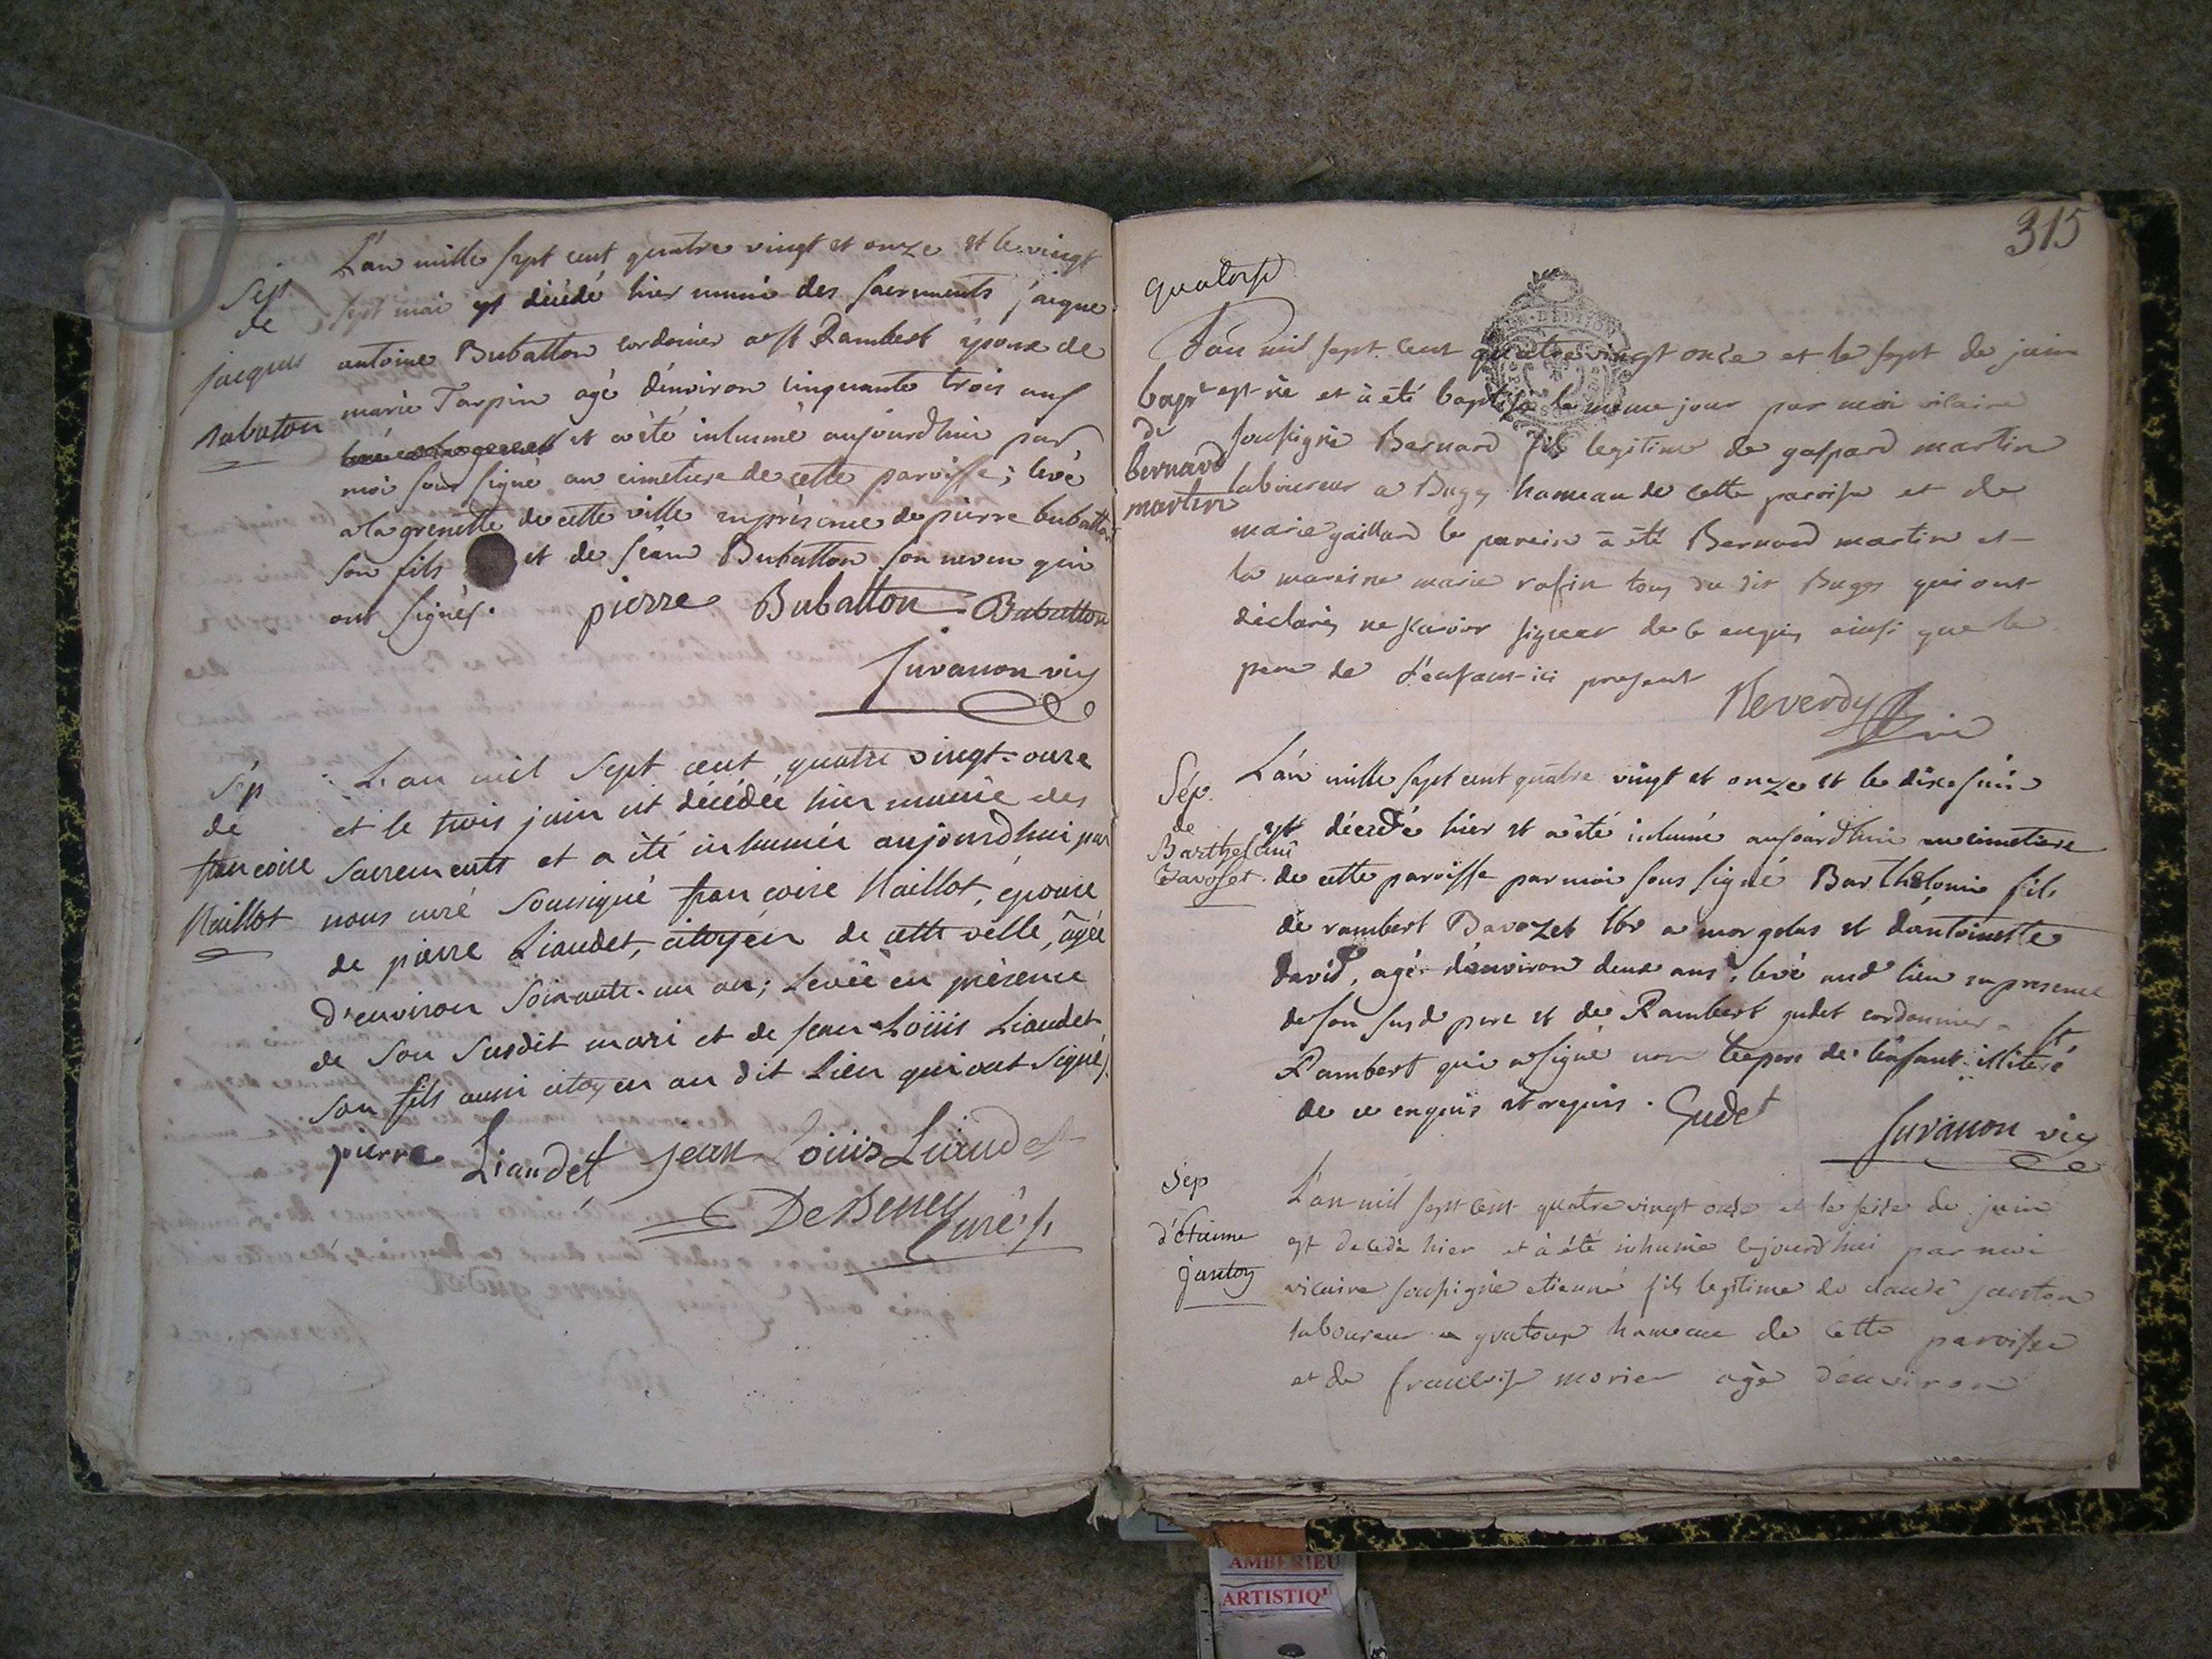 Sép
de
jacques
Bubaton
L'an mille sept cent quatre vingt et onze et le vingt
sept mai est décédé hier muni des sacrements jacque
antoine Bubatton cordonier a st Rambert époux de
marie Tarpin agé d'environ cinquante trois ans
et a été inhumé aujourdhui par
moi sous signé au cimetiere de cette paroisse; levé
a la grenette de cette ville en présence de pierre bubatton
son fils et de jean Bubatton son neveu qui
ont signés.
pierre Bubatton Bubatton
juvanon vic
Sép
de
francoise
Maillot
L'an mil sept cent quatre vingt-onze
et le trois juin est décédée hier munie des
sacrements et a été inhumée aujourdhui par
nous curé soussigné francoise Maillot, épouse
de pierre Liaudet, citoyen de cette ville, âgée
d'environ soixante-un an; levée en présence
de son susdit mari et de jean-Loüis Liaudet
son fils aussi citoyen au dit lieu qui ont signé.
pierre Liaudet jean Loüis Liaudet
Curé
315
quatorse
L'an mil sept cent quatre vingt onze et le sept de juin
bapt
de
bernard
martin
est né et à été baptisé le meme jour par moi vicaire
soussigné Bernard fils legitime de gaspard martin
laboureur a Buges hameau de cette paroisse et de
marie gaillard le parein à été Bernard martin et
la mareine marie rafin tous du dit Buges qui ont
déclarés ne scavoir signer de ce enquis ainsi que le
pere de l'enfant ici present
Reverdy vic
Sép.
de
Barthelemi
Bavozet
L'an mille sept cent quatre vingt et onze et le dix juin
est décédé hier et a été inhumé aujourdhui au cimetiere
de cette paroisse par moi sous signé Barthelomi fils
de rambert Bavozet lbr a morgelas et d'antoinette
david, agé d'environ deux ans, levé aud lieu en presence
de son susd pere et de Rambert gudet cordonnier a st
Rambert qui a signé non le pere de l'enfant illiteré
de ce enquis et requis. Gudet
juvanon vic
Sép
d'étienne
janton
L'an mil sept cent quatre vingt onze et le seize de juin
est décédé hier et à été inhumé cejourdhui par moi
vicaire soussigné etienne fils legitime de claude janton
laboureur a hameau de cette paroisse
et de francoise morier agé d'environ
AMBERIEU
ARTISTIQ